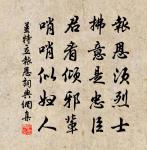 報恩須烈士
拂意是忠臣
君看傾邪輩
哨哨似婦人
姜特立報恩詞典網集